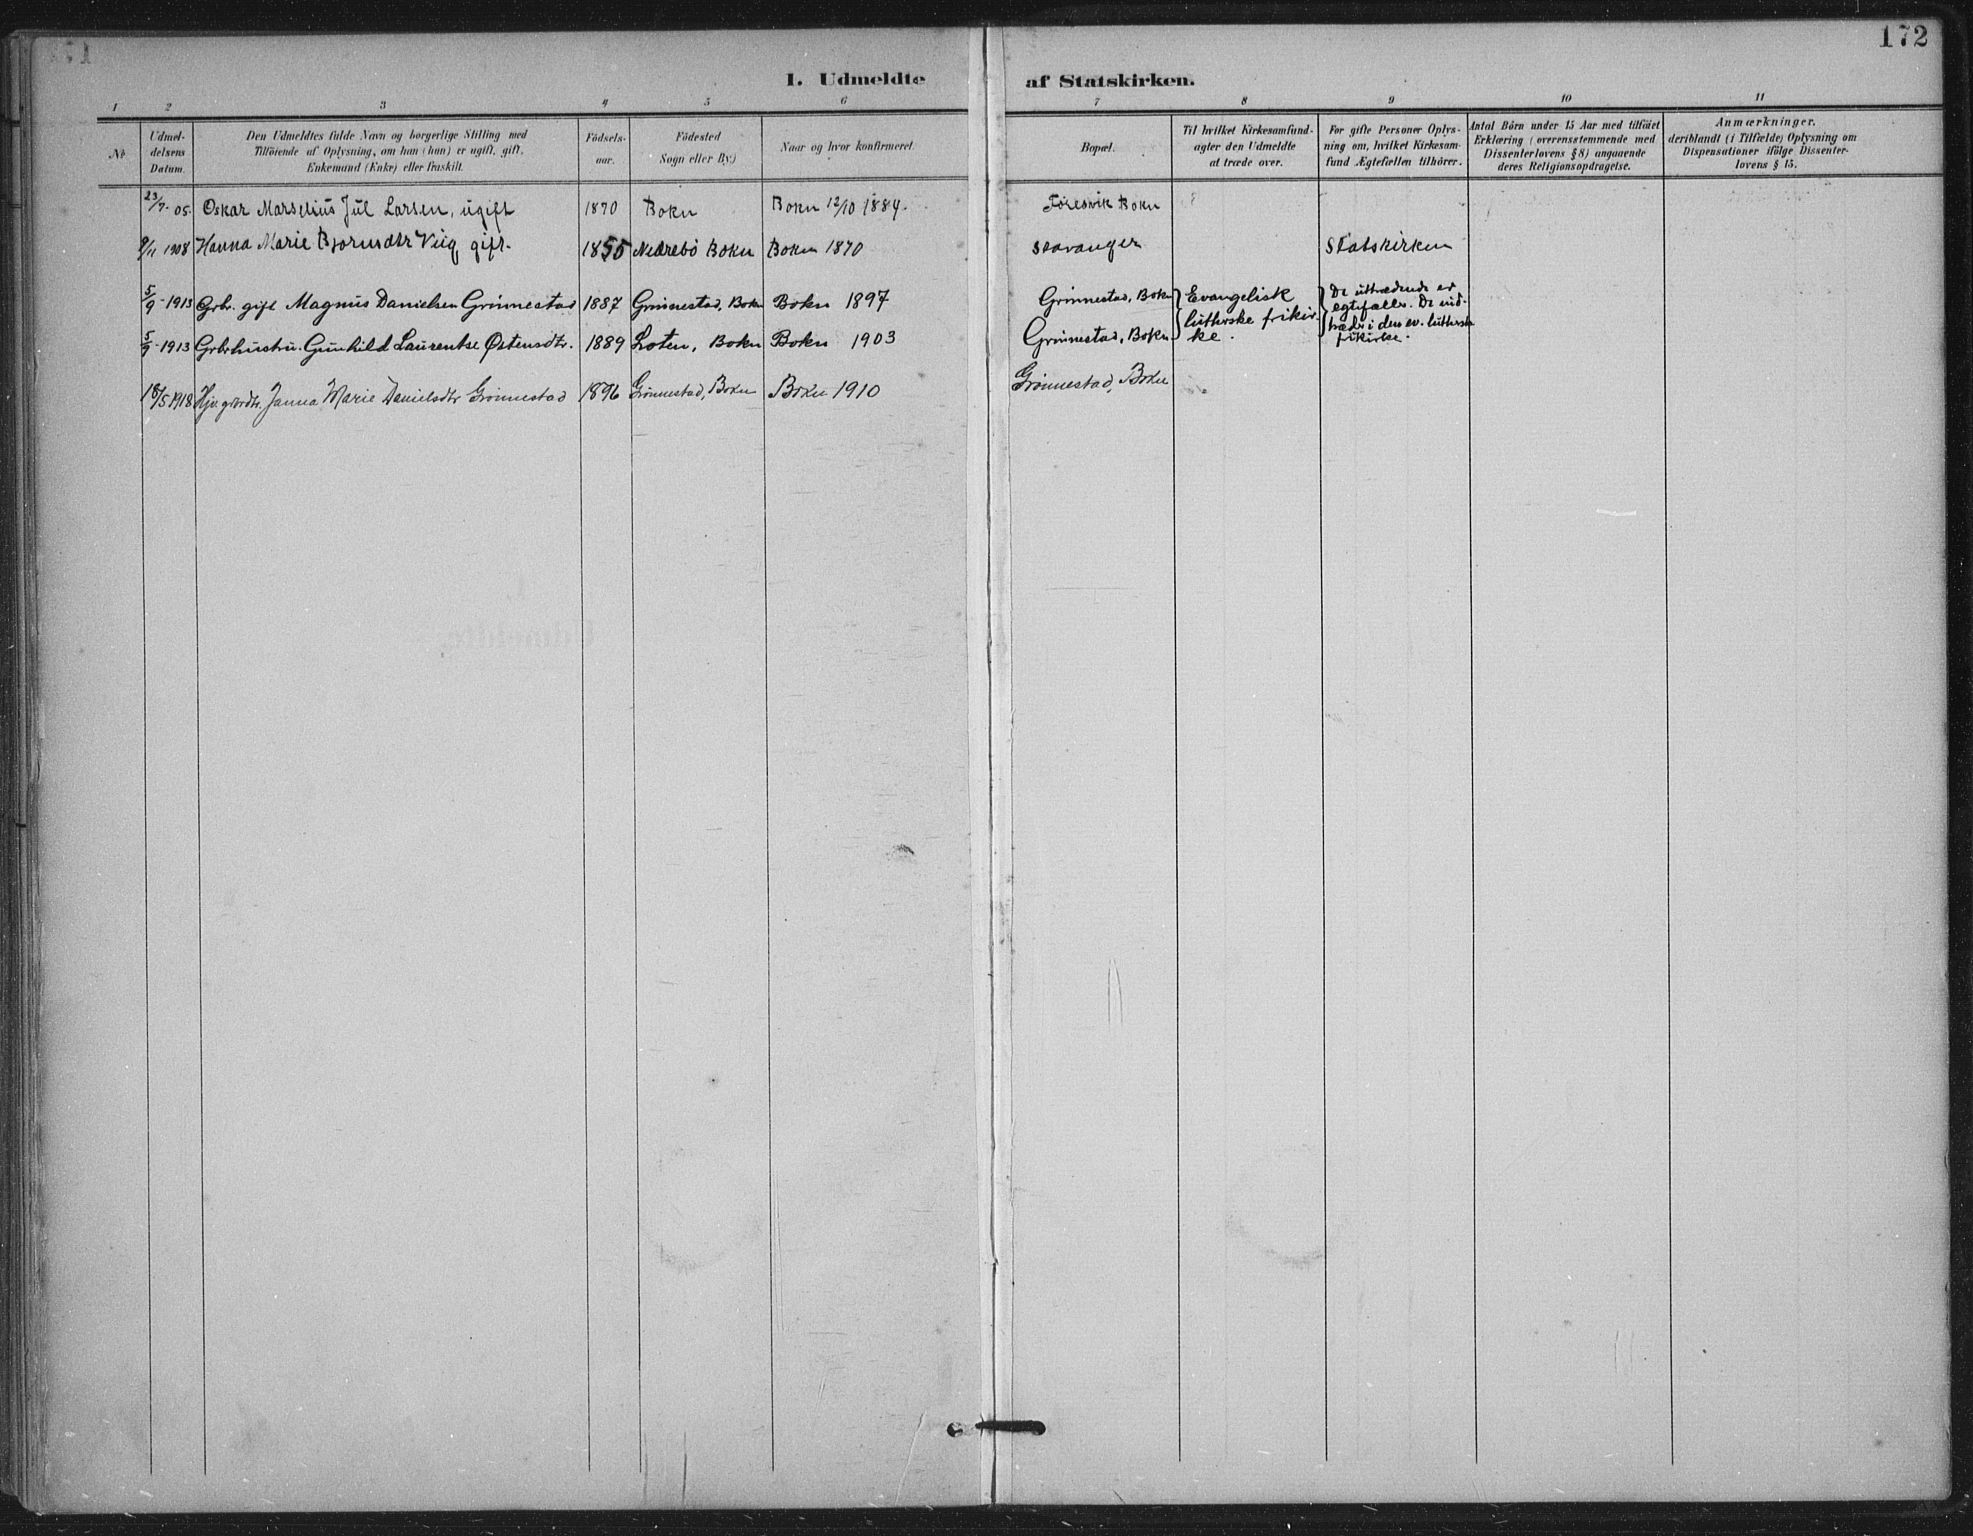 172
1. Udmeldte af Statskirken.
1 2 3 4 5 6 7 8 9 10 11
No
Udmel-
delsens
Datum.
Den Udmeldtes fulde Navn og borgerlige Stilling med
Tilföiende af Oplysning, om han (hun) er ugift, gift,
Enkemand (Enke) eller fraskilt.
Födsels-
aar.
Födested
Sogn eller By.)
Naar og hvor konfirmeret.
Bopæl.
Til hvilket Kirkesamfund-
agter den Udmeldte
at træde over.
For gifte Personer Oplys-
ning om, hvilket Kirkesam-
fund Ægtefællen tilhörer.
Antal Börn under 15 Aar med tilföiet
Erklæring (overensstemmende med
Dissenterlovens § 8) angaaende
deres Religionsopdragelse.
Anmærkninger,
deriblandt (i Tilfælde) Oplysning om
Dispensationer ifölge Dissenter-
lovens § 15.
23/7-05. Oskar Marselius Jul Larsen, ugift 1870 Bokn Bokn 12/10 1884. Föresvik Bokn
9/11 1908 Hanna Marie Bjornsdtr Veig, gift. 1855 Nedrebö Bokn Bokn 1870 Stavanger Statskirken
5/9-1913 Grbr. gift Magnus Danielsen Grönnestad 1887 Grönnestad, Bokn Bokn 1897 Grönnestad, Bokn
Evangelisk
lutherske frikir-
ke.
De uttrædende er
egtefæller. De ind-
træder i den ev. lutherske
frikirke.
5/9-1913 Grbrhustru. Gunhild Laurentse Østensdtr. 1889 Loten, Bokn Bokn 1903 Grönnestad, Bokn
18/5 1918 Hjv. grbrdtr. Janna Marie Danielsdtr Grönnestad 1896 Grönnestad, Bokn Bokn 1910 Grönnestad, Bokn